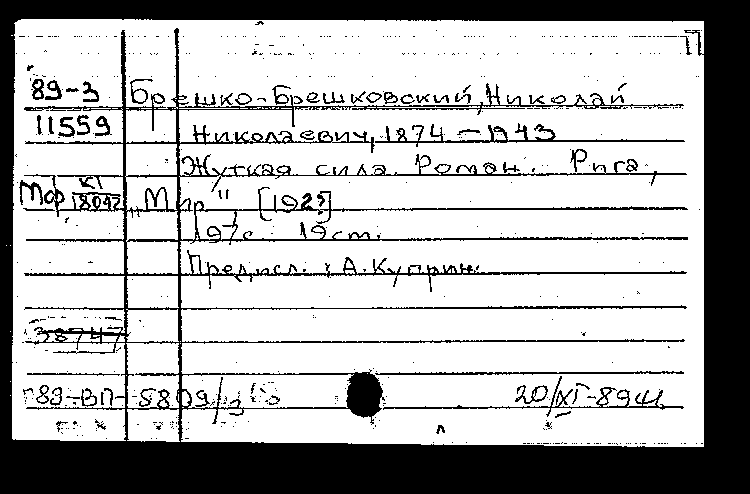 89-3 Брешко-Брешковский, Николай
11559 Николаевич, 1874 – 1943
Жуткая сила. Роман. Рига,
Мф К1/18092 „Мир", [192?]
197с. 19cm.
Предисл.: А. Куприн.
38747
89-ВП- 8809/3 20/XI-89